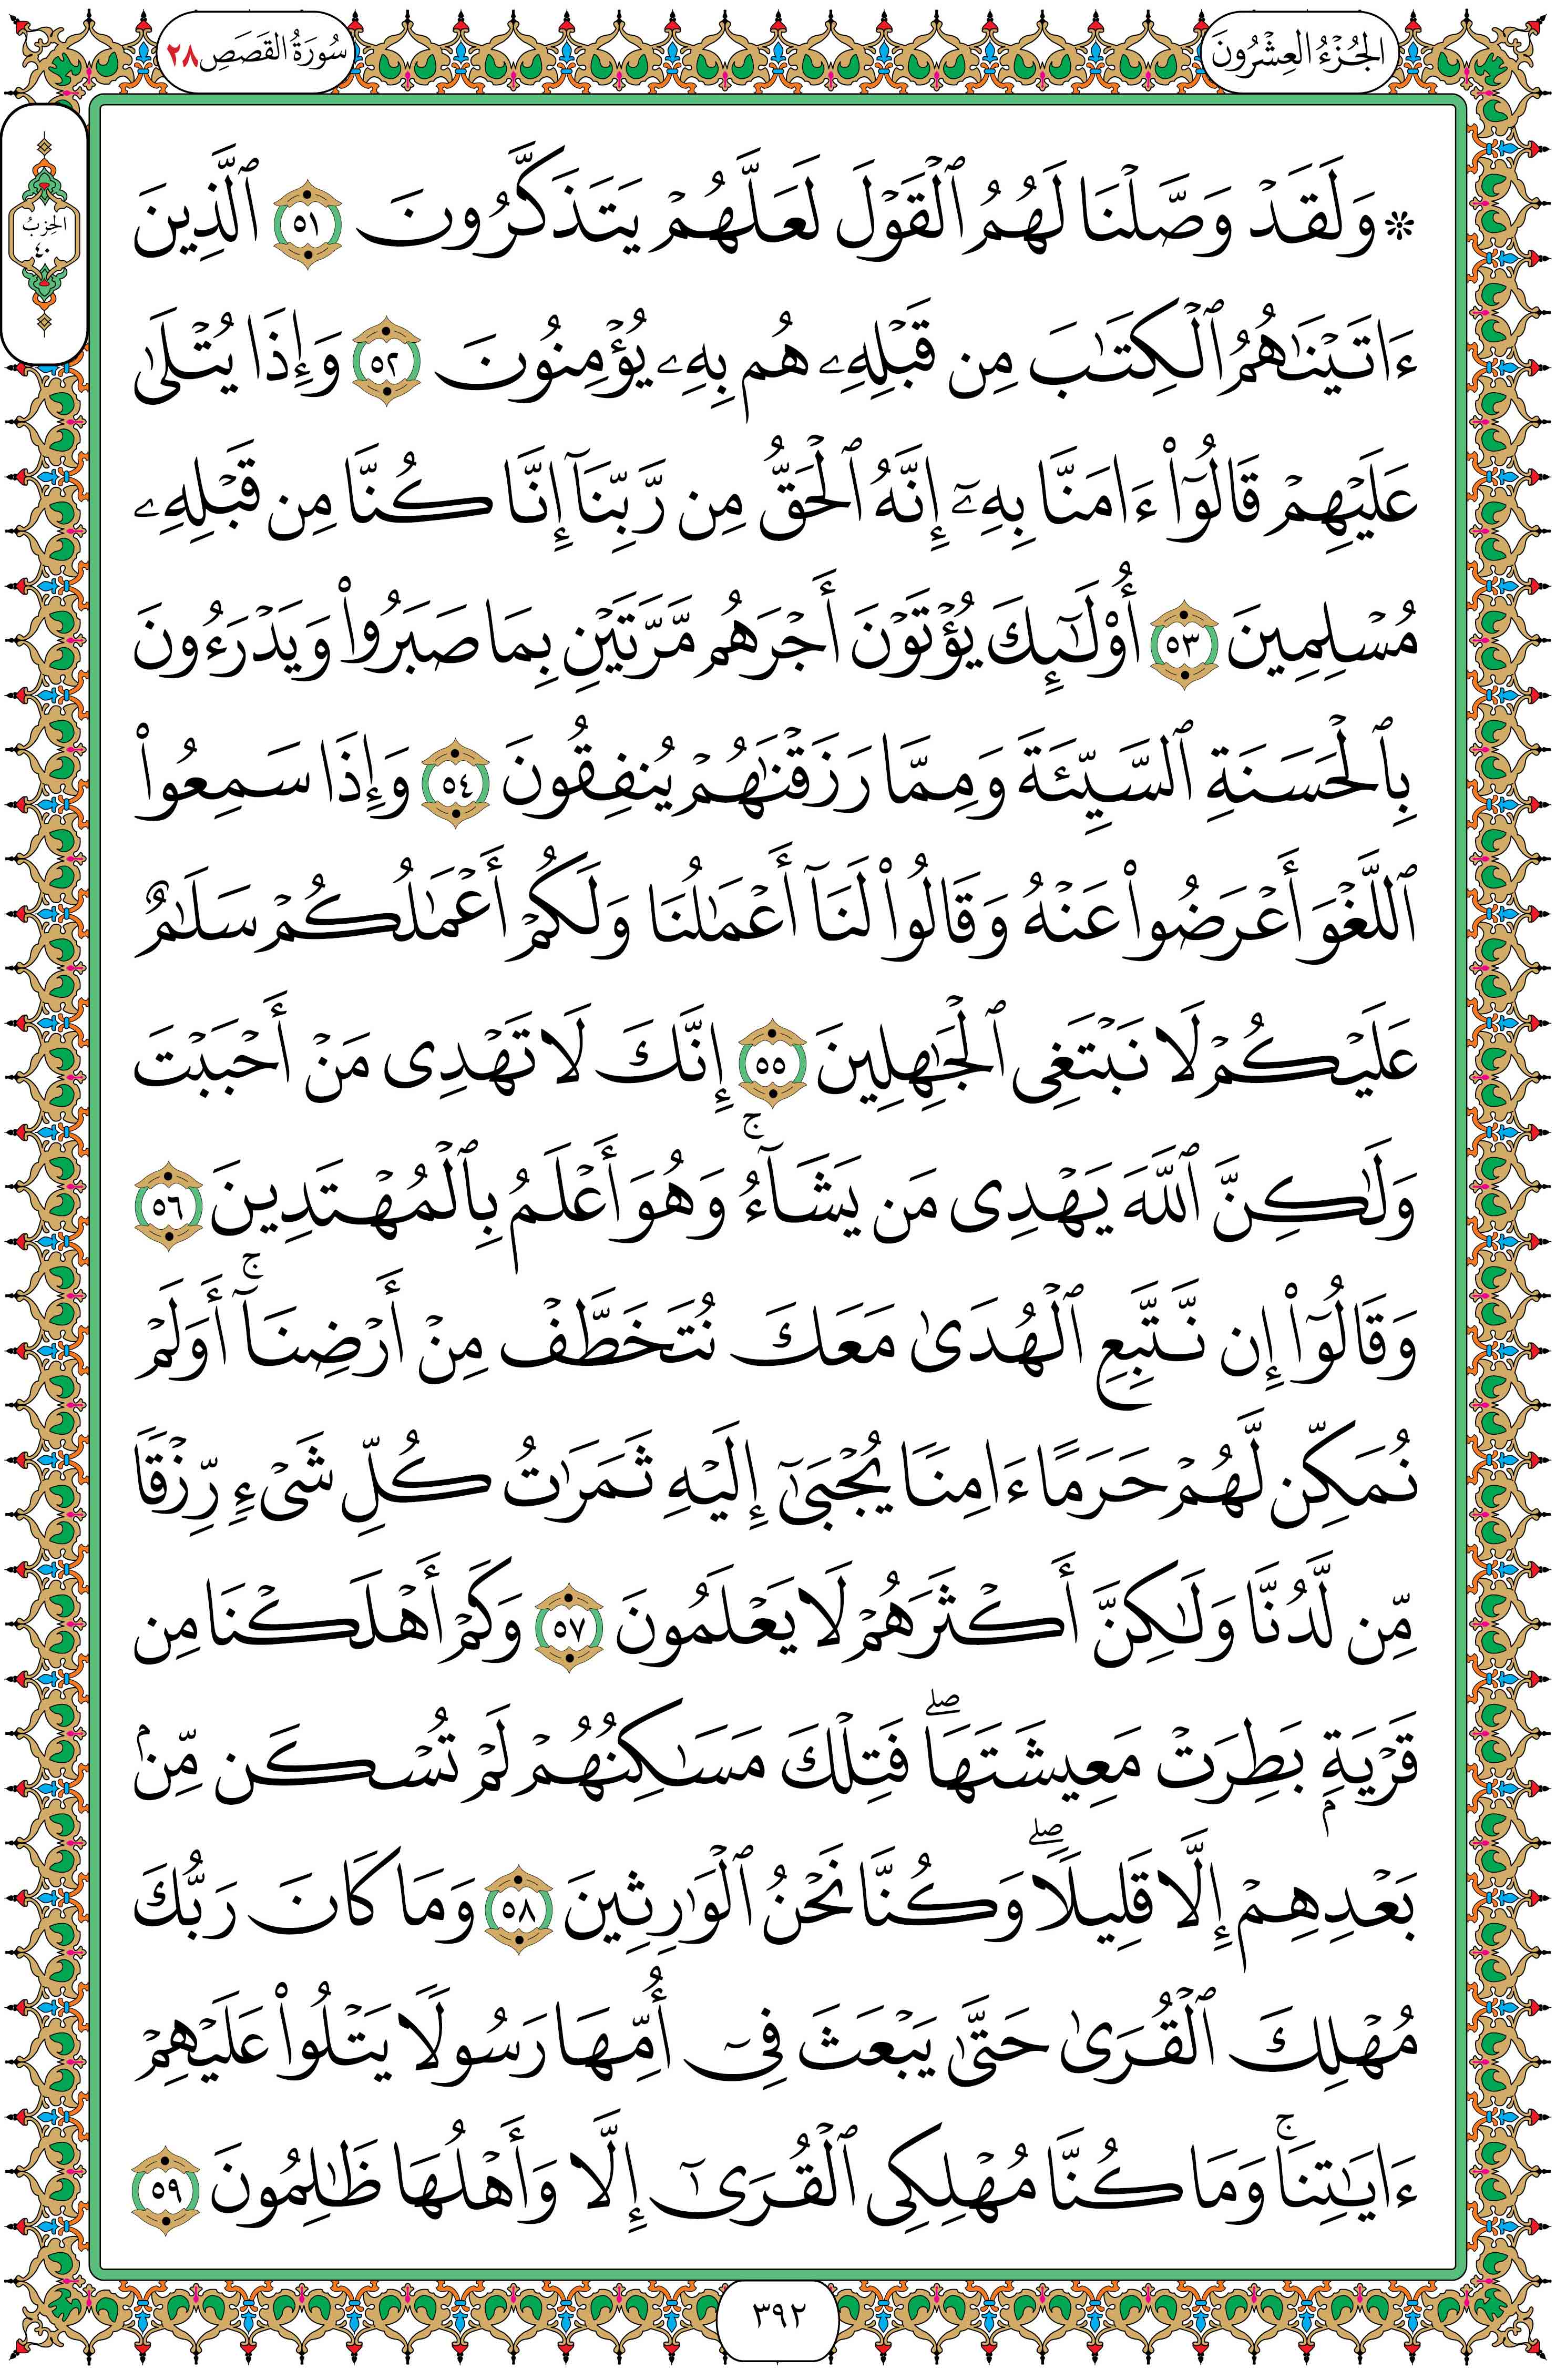 الجُزْءُ العِشْرُونَ
سُورَةُ القَصَصِ ٢٨
الحِزبُ
٤٠
۞ وَلَقَدْ وَصَّلْنَا لَهُمُ ٱلْقَوْلَ لَعَلَّهُمْ يَتَذَكَّرُونَ ٥١ ٱلَّذِينَ
ءَاتَيْنَٰهُمُ ٱلْكِتَٰبَ مِن قَبْلِهِۦ هُم بِهِۦ يُؤْمِنُونَ ٥٢ وَإِذَا يُتْلَىٰ
عَلَيْهِمْ قَالُوٓا۟ ءَامَنَّا بِهِۦٓ إِنَّهُ ٱلْحَقُّ مِن رَّبِّنَآ إِنَّا كُنَّا مِن قَبْلِهِۦ
مُسْلِمِينَ ٥٣ أُو۟لَٰٓئِكَ يُؤْتَوْنَ أَجْرَهُم مَّرَّتَيْنِ بِمَا صَبَرُوا۟ وَيَدْرَءُونَ
بِٱلْحَسَنَةِ ٱلسَّيِّئَةَ وَمِمَّا رَزَقْنَٰهُمْ يُنفِقُونَ ٥٤ وَإِذَا سَمِعُوا۟
ٱللَّغْوَ أَعْرَضُوا۟ عَنْهُ وَقَالُوا۟ لَنَآ أَعْمَٰلُنَا وَلَكُمْ أَعْمَٰلُكُمْ سَلَٰمٌ
عَلَيْكُمْ لَا نَبْتَغِى ٱلْجَٰهِلِينَ ٥٥ إِنَّكَ لَا تَهْدِى مَنْ أَحْبَبْتَ
وَلَٰكِنَّ ٱللَّهَ يَهْدِى مَن يَشَآءُ ۚ وَهُوَ أَعْلَمُ بِٱلْمُهْتَدِينَ ٥٦
وَقَالُوٓا۟ إِن نَّتَّبِعِ ٱلْهُدَىٰ مَعَكَ نُتَخَطَّفْ مِنْ أَرْضِنَآ ۚ أَوَلَمْ
نُمَكِّن لَّهُمْ حَرَمًا ءَامِنًا يُجْبَىٰٓ إِلَيْهِ ثَمَرَٰتُ كُلِّ شَىْءٍ رِّزْقًا
مِّن لَّدُنَّا وَلَٰكِنَّ أَكْثَرَهُمْ لَا يَعْلَمُونَ ٥٧ وَكَمْ أَهْلَكْنَا مِن
قَرْيَةٍۭ بَطِرَتْ مَعِيشَتَهَا ۖ فَتِلْكَ مَسَٰكِنُهُمْ لَمْ تُسْكَن مِّنۢ
بَعْدِهِمْ إِلَّا قَلِيلًا ۖ وَكُنَّا نَحْنُ ٱلْوَٰرِثِينَ ٥٨ وَمَا كَانَ رَبُّكَ
مُهْلِكَ ٱلْقُرَىٰ حَتَّىٰ يَبْعَثَ فِىٓ أُمِّهَا رَسُولًا يَتْلُوا۟ عَلَيْهِمْ
ءَايَٰتِنَا ۚ وَمَا كُنَّا مُهْلِكِى ٱلْقُرَىٰٓ إِلَّا وَأَهْلُهَا ظَٰلِمُونَ ٥٩
٣٩٢